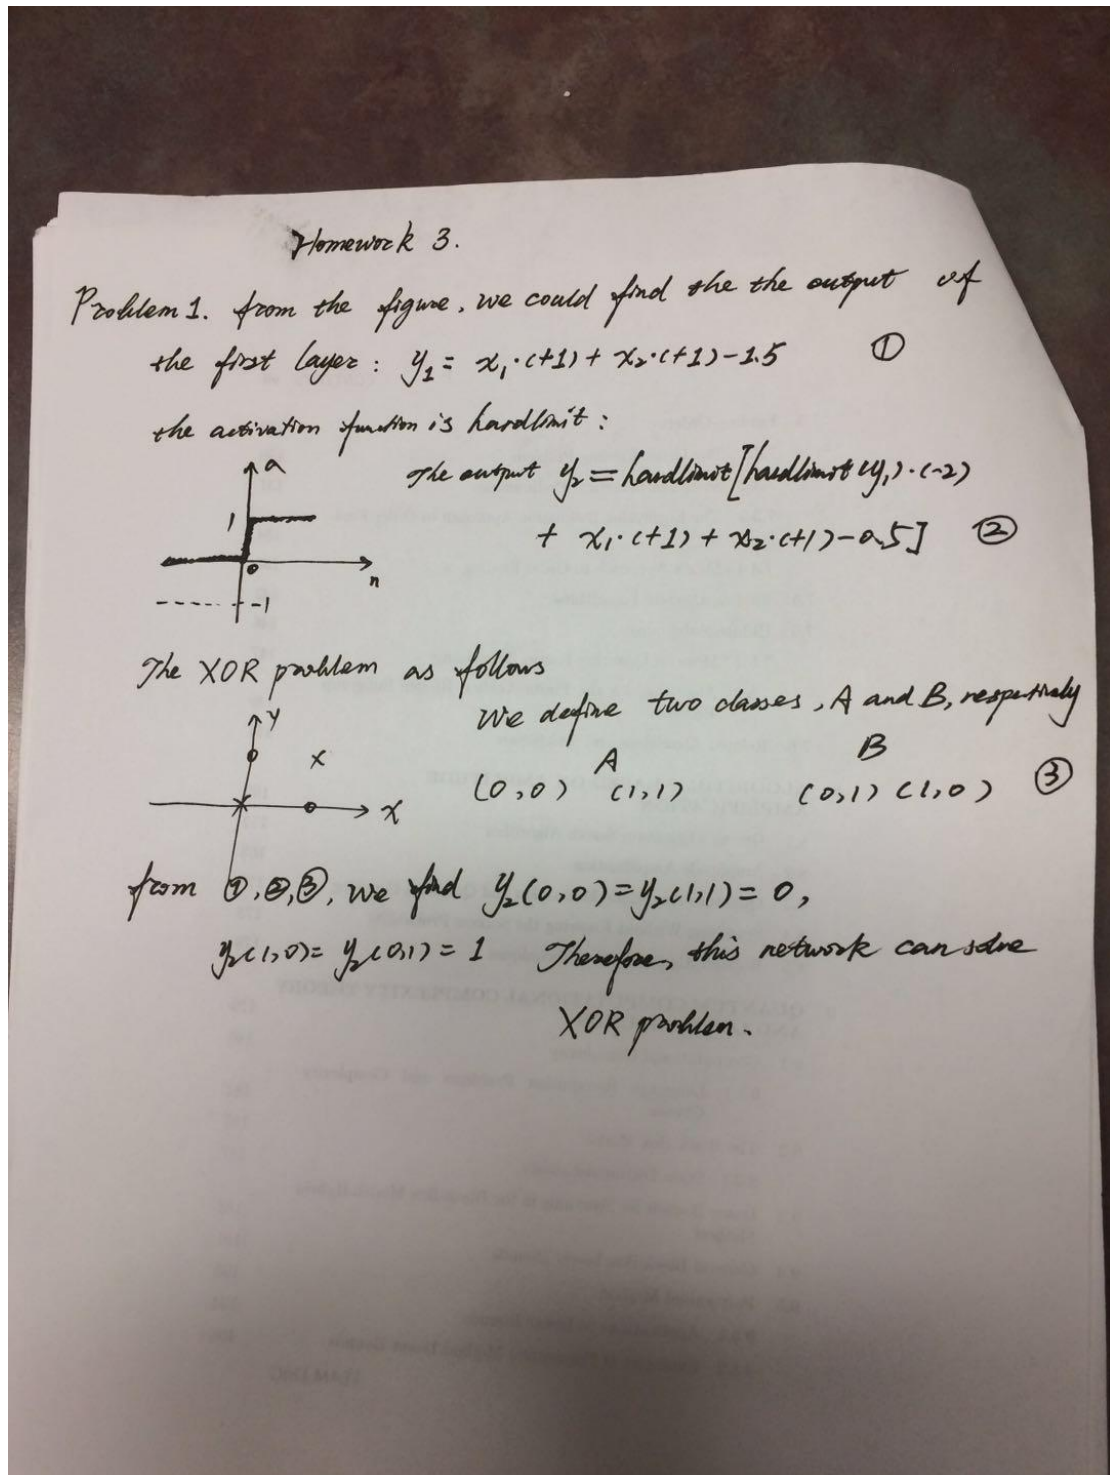 Homework 3.
Problem 1. from the figure, we could find the the output of
the first layer : y₁ = x₁·(+1) + x₂·(+1) - 1.5 ①
the activation function is hardlimit :
a
The output y₂ = hardlimit[hardlimit(y₁)·(-2)
1
+ x₁·(+1) + x₂·(+1) - 0.5] ②
0
n
-1
The XOR problem as follows
We define two classes, A and B, respectively
Y
A B
X
(0,0) (1,1) (0,1) (1,0) ③
from ①,②,③, we find y₂(0,0) = y₂(1,1) = 0,
y₂(1,0) = y₂(0,1) = 1 Therefore, this network can solve
XOR problem.